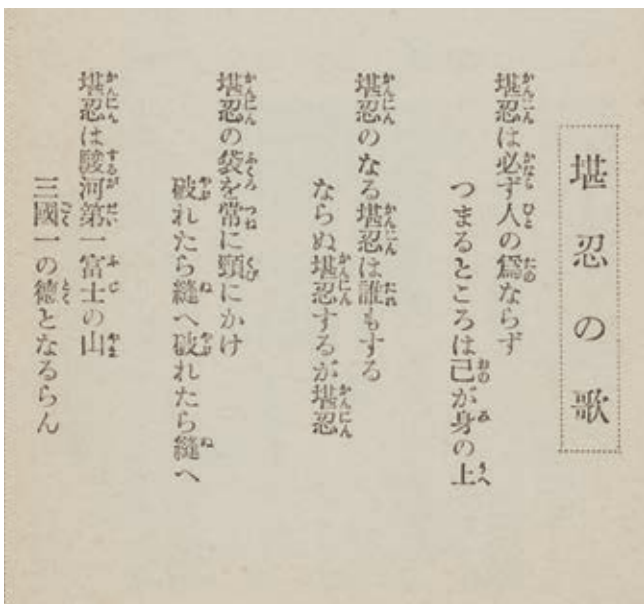 堪忍の歌
堪忍は必ず人の爲ならず
つまるところは己が身の上
堪忍のなる堪忍は誰もする
ならぬ堪忍するが堪忍
堪忍の袋を常に頸にかけ
破れたら縫へ破れたら縫へ
堪忍は駿河第一富士の山
三國一の德となるらん